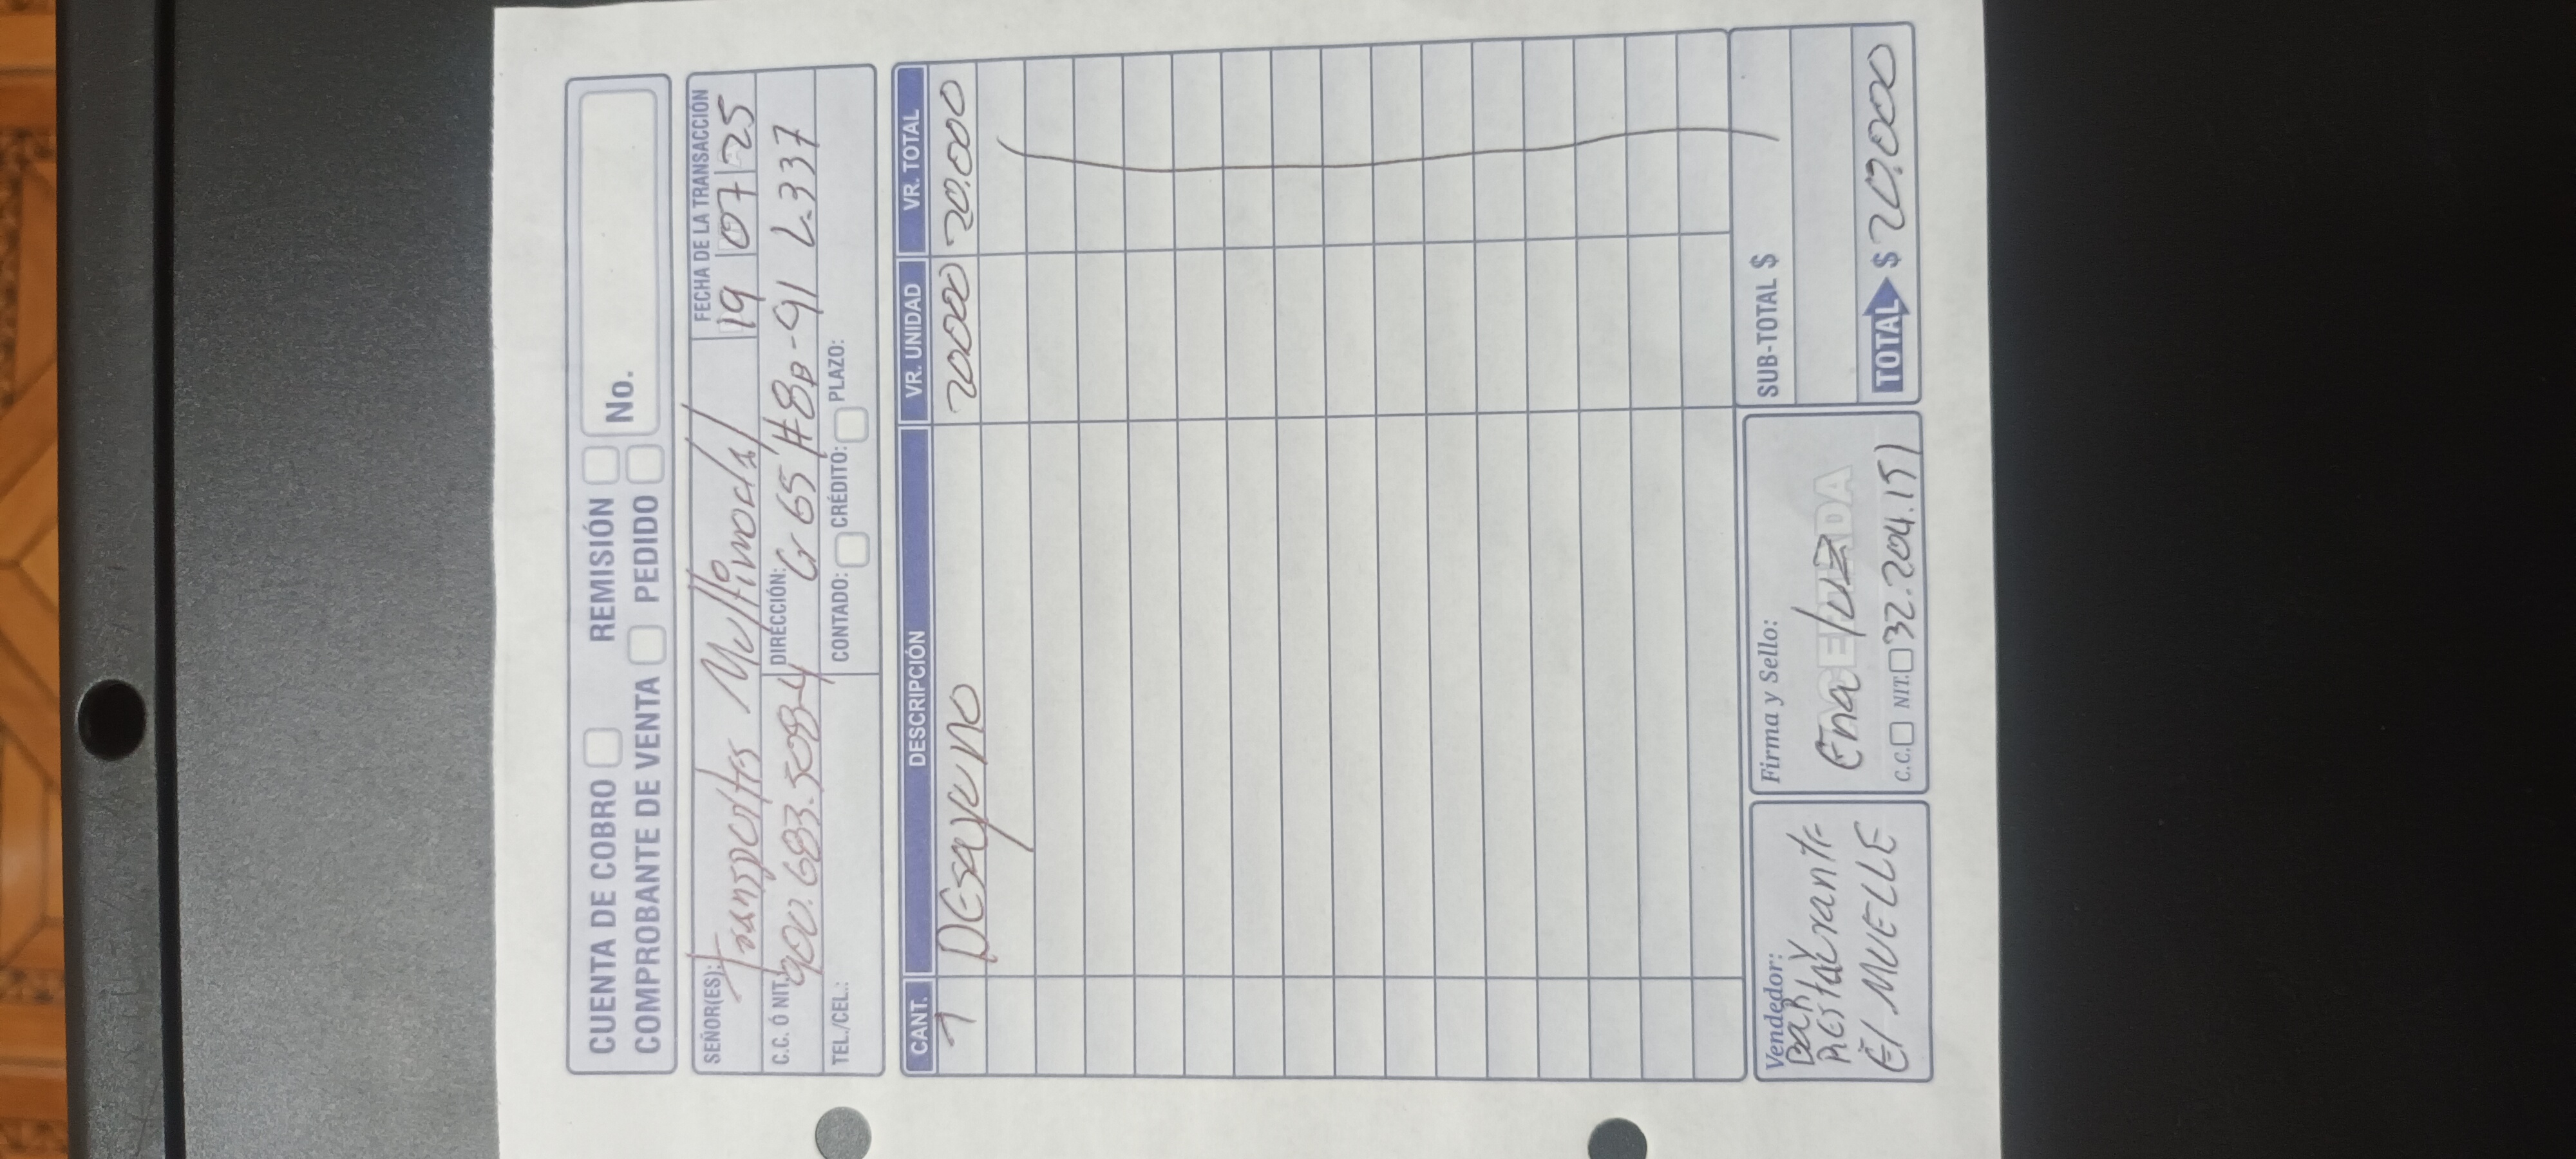 CUENTA DE COBRO REMISIÓN
COMPROBANTE DE VENTA PEDIDO No.
SEÑOR(ES): Transportes Multimodal
FECHA DE LA TRANSACCIÓN
19 07 25
C.C. Ó NIT. 900.683.508-4 DIRECCIÓN: Cr 65 #8B-91 L-337
TEL./CEL.: CONTADO: CRÉDITO: PLAZO:
CANT. DESCRIPCIÓN VR. UNIDAD VR. TOTAL
1 DEsayuno 20000 20.000
Vendedor: Firma y Sello: SUB-TOTAL $
Bar y
REstaurante
El MUELLE
Ena luz
C.C. NIT. 32.204.151
TOTAL $ 20.000